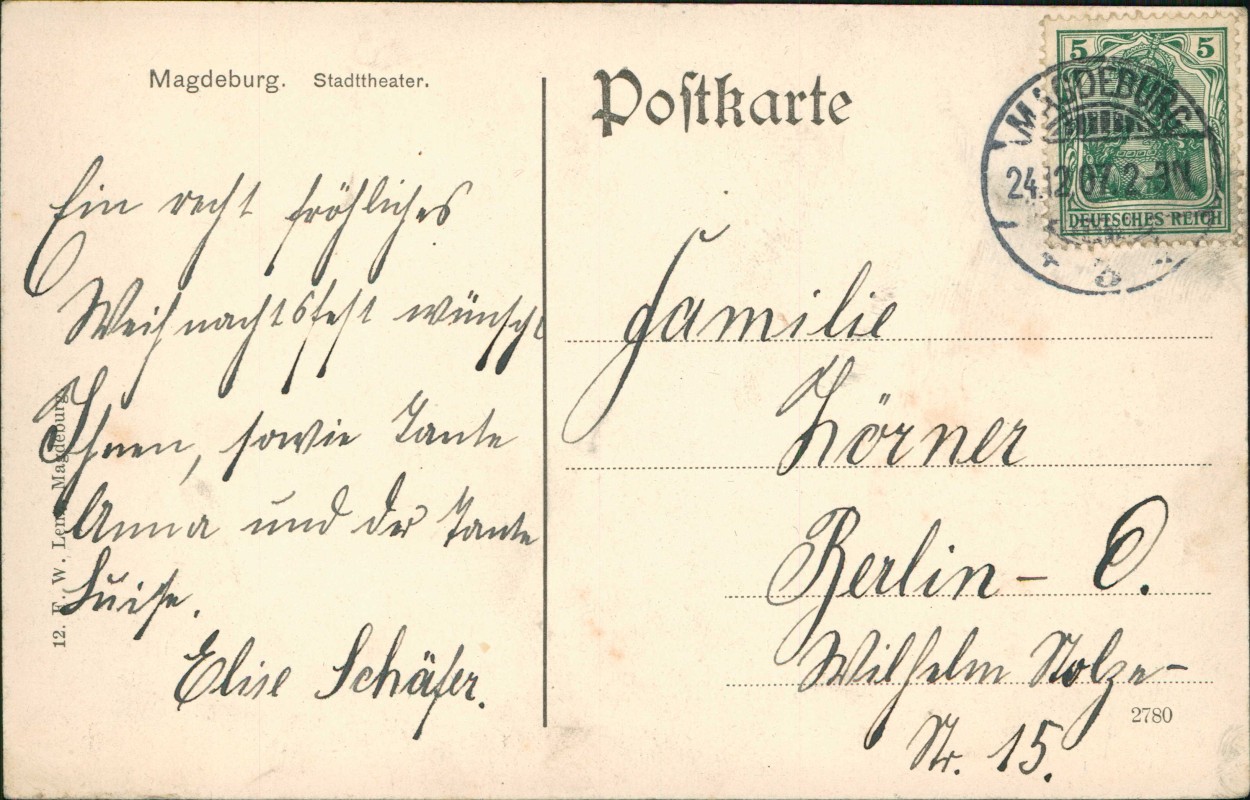 Magdeburg. Stadttheater.
Ein recht fröhliches
Weihnachtsfest wünscht
Ihnen, sowie Tante
Anna und der Tante
Luise.
Elise Schäfer.
12. F. W. Magdeburg.
Postkarte
5 5
DEUTSCHES REICH
MAGDEBURG
24.12.07. 2-3N
Familie
Hörner
Berlin - C.
Wilhelm Stolze-
Str. 15.
2780